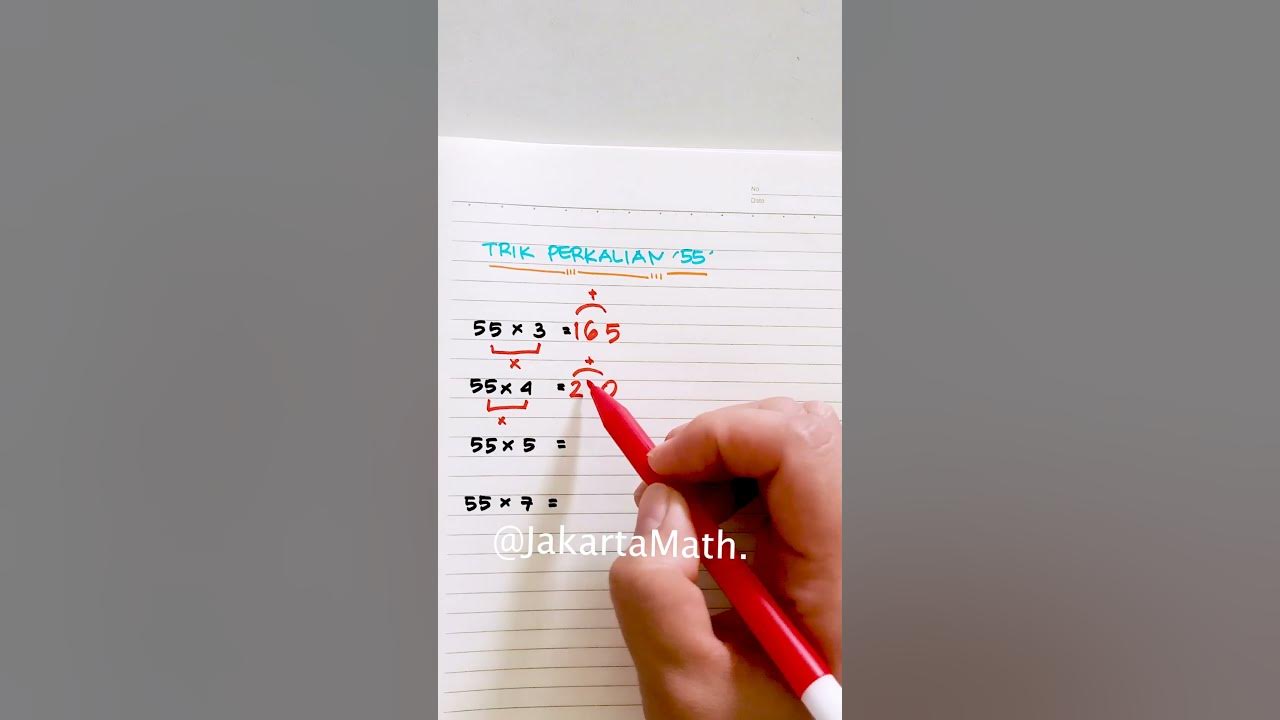 No
Date
TRIK PERKALIAN '55'
+
55 × 3 = 165
×
+
55 × 4 = 2 0
×
55 × 5 =
55 × 7 =
@JakartaMath.